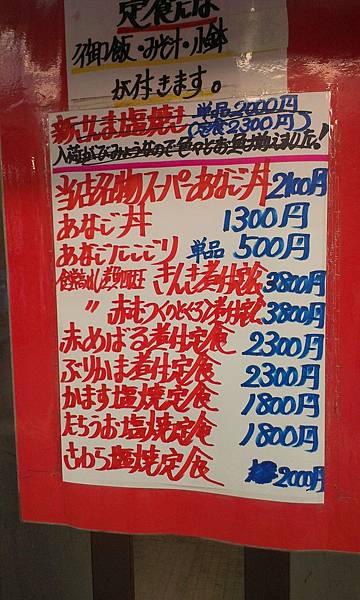 定食には
御飯・みそ汁・小鉢
が付きます。
新さんま塩焼き 単品2000円
(定食2300円)
当店名物スーパーあなご丼 2100円
あなご丼 1300円
あなごにこごり 単品 500円
きんき煮付定食 3800円
〃 赤むつ(のどくろ)煮付定食 3800円
赤めばる煮付定食 2300円
ぶりかま煮付定食 2300円
かます塩焼定食 1800円
たちうお塩焼定食 1800円
さわら塩焼定食 2000円